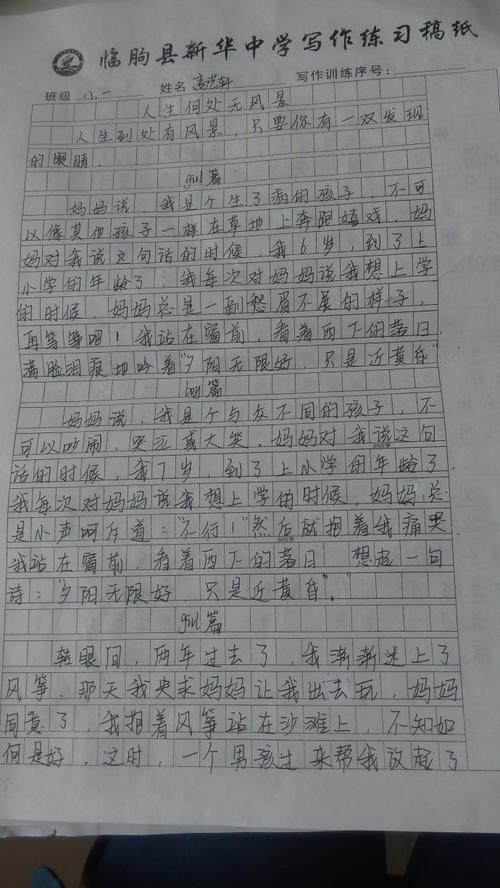 临朐县新华中学写作练习稿纸
班级 八.一 姓名 写作训练序号:
人生何处无风景
人生到处有风景,只要你有一双发现
的眼睛.
girl篇
妈妈说,我是个生了病的孩子,不可
以像其他孩子一样在草地上奔跑嬉戏.妈
妈对我说这句话的时候,我6岁,到了上
小学的年龄了,我每次对妈妈说我想上学
的时候,妈妈总是一副愁眉不展的样子,
再等等吧!我站在窗前,看着西下的落日,
满脸泪痕地吟着"夕阳无限好,只是近黄昏"
boy篇
妈妈说,我是个与众不同的孩子,不
可以吵闹,哭泣或大笑.妈妈对我说这句
话的时候,我7岁,到了上小学的年龄了.
我每次对妈妈说我想上学的时候,妈妈总
是小声呵斥道:"不行!"然后就抱着我痛哭
我站在窗前,看着西下的落日 想起一句
诗:"夕阳无限好,只是近黄昏".
girl篇
转眼间,两年过去了,我渐渐迷上了
风筝,那天我央求妈妈让我出去玩,妈妈
同意了,我抱着风筝站在沙滩上,不知如
何是好,这时,一个男孩过来帮我放起了